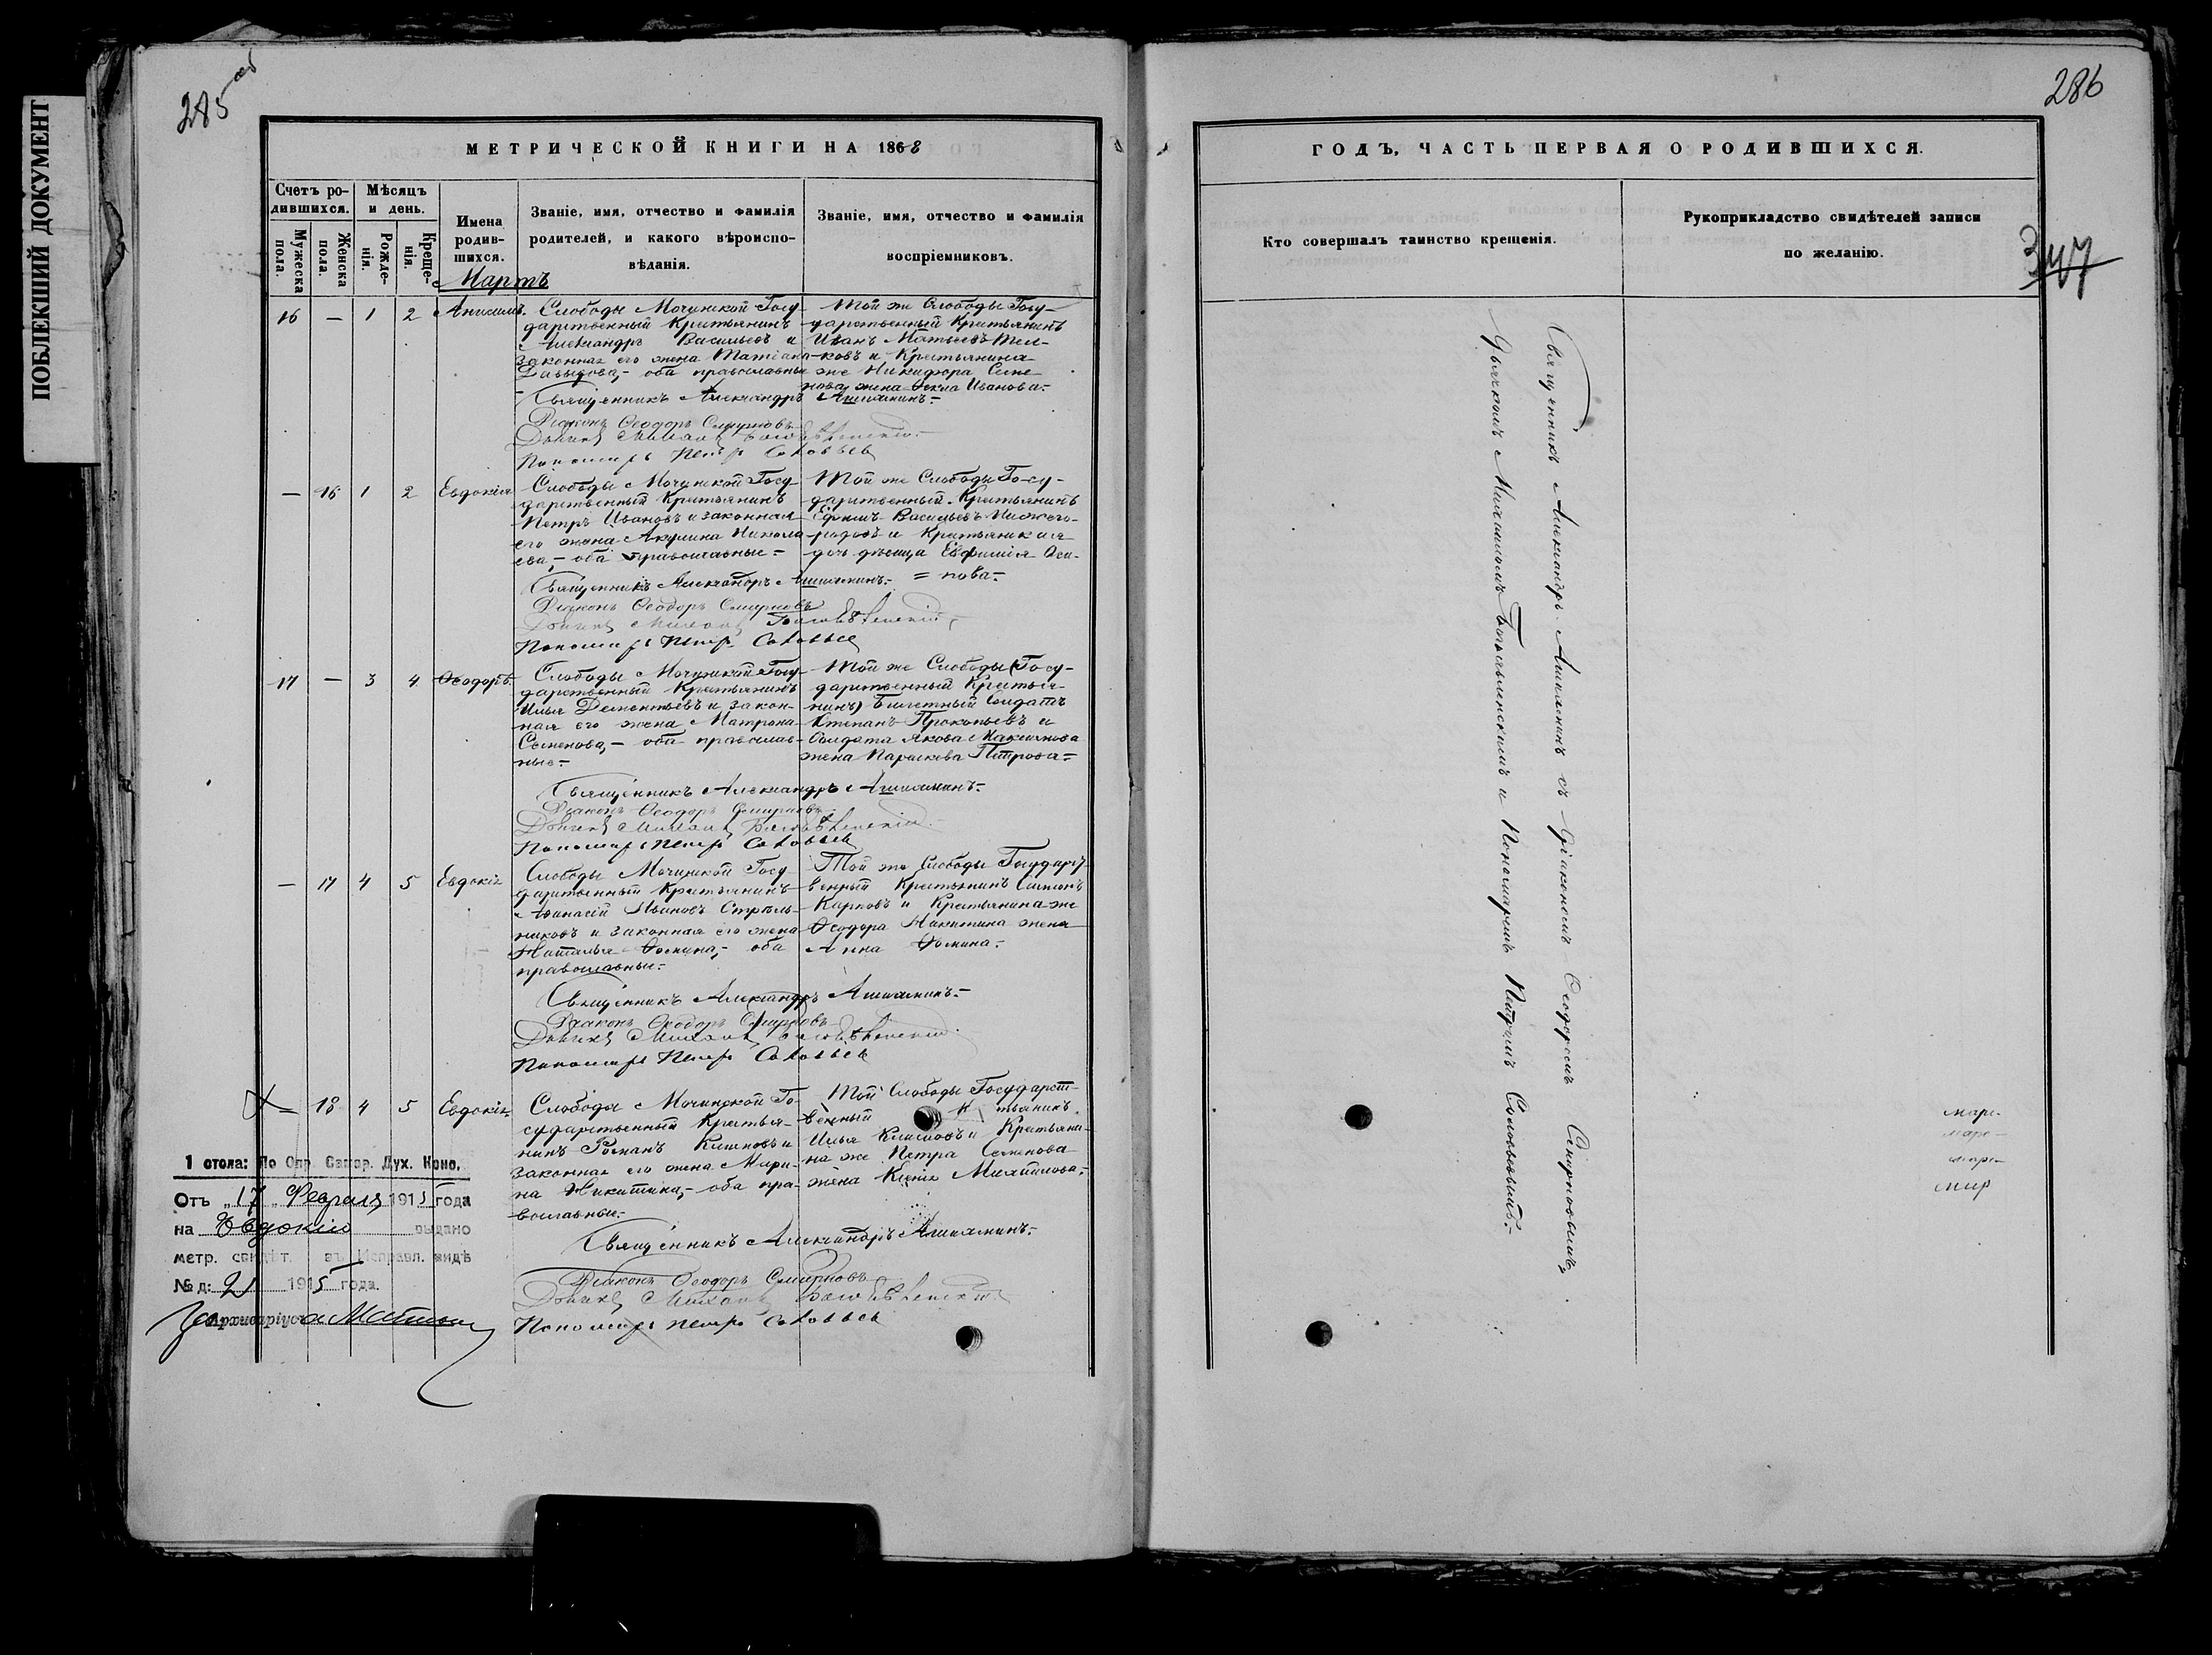 ПОБЛЕКШИЙ ДОКУМЕНТ
285 об
МЕТРИЧЕСКОЙ КНИГИ НА 1868
Счетъ ро-
дившихся.
Мѣсяцъ
и день.
Мужеска
пола.
Женска
пола.
Рожде-
нія.
Креще-
нія.
Имена
родив-
шихся.
Званіе, имя, отчество и фамилія
родителей, и какого вѣроиспо-
вѣданія.
Званіе, имя, отчество и фамилія
воспріемниковъ.
Мартъ
16 — 1 2 Анисимъ.
Слободы Мочинской Госу-
дарственный Крестьянинъ
Александръ Васильевъ и
законная его жена Татіана
Давыдова,- оба православные
Той же Слободы Госу-
дарственный Крестьянинъ
Иванъ Матвеевъ
ковъ и Крестьянина
же Никифора Семе-
нова жена Ѳекла Иванова.-
Священникъ Александръ
Діаконъ Ѳеодоръ Смирновъ
Дьячекъ Михаилъ Богоявленскій
Пономарь Петръ Соловьев
— 16 1 2 Евдокія
Слободы Мочинской Госу-
дарственный Крестьянинъ
Петръ Ивановъ и законная
его жена Акулина Никола-
ева,- оба православные-
Той же Слободы Госу-
дарственный Крестьянинъ
Ефимъ Васильевъ Нижего-
родовъ и Крестьянская
дочь дѣвица Евфимія Оси-
= пова.-
Священникъ Александръ
Діаконъ Ѳеодоръ Смирновъ
Дьячекъ Михаилъ Богоявленскій
Пономарь Петръ Соловьев
17 — 3 4 Ѳеодоръ.
Слободы Мочинской Госу-
дарственный Крестьянинъ
Илья Дементьевъ и закон-
ная его жена Матрона
Семенова,- оба православ-
ные-
Той же Слободы (Госу-
дарственный Крестья-
нинъ) Билетный Солдатъ
Степанъ Прокопьевъ и
Солдата Якова Максимова
жена Параскева Петрова-
Священникъ Александръ
Діаконъ Ѳеодоръ Смирновъ
Дьячекъ Михаилъ Богоявленскій
Пономарь Петръ Соловьев
— 17 4 5 Евдокія
Слободы Мочинской Госу-
дарственный Крестьянинъ
Аѳанасій Ивановъ Стрѣль-
никовъ и законная его жена
Наталья Ѳомина,- оба
православные.-
Той же Слободы Государст-
венный Крестьянинъ Симеонъ
Карповъ и Крестьянина же
Ѳеодора Никитина жена
Анна Ѳомина.-
Священникъ Александръ
Діаконъ Ѳеодоръ Смирновъ
Дьячекъ Михаилъ Богоявленскій
Пономарь Петръ Соловьев
— 18 4 5 Евдокія
Слободы Мочинской Го-
сударственный Крестья-
нинъ Романъ Климовъ и
законная его жена Мари-
на Никитина,- оба пра-
вославные.-
Той Слободы Государст-
венный К тьянинъ
Илья Климовъ и Крестьяни-
на же Петра Семенова
жена Ксенія Михайлова.-
Священникъ Александръ
Діаконъ Ѳеодоръ Смирновъ
Дьячекъ Михаилъ Богоявленскій
Пономарь Петръ Соловьев
1 стола: По Опр. Самар. Дух. Конс.
Отъ „17„ Февраля 1915 года
на Евдокію выдано
метр. свидѣт. въ Исправл. видѣ
№ д: 21 1915 года.
Архиваріуса
286
ГОДЪ, ЧАСТЬ ПЕРВАЯ О РОДИВШИХСЯ.
Кто совершалъ таинство крещенія.
Рукоприкладство свидѣтелей записи
по желанію.
347
Священникъ Александръ съ Діакономъ Ѳеодоромъ Смирновымъ,
Дьячкомъ Михаиломъ Богоявленскимъ и Пономаремъ Петромъ Соловьевымъ.-